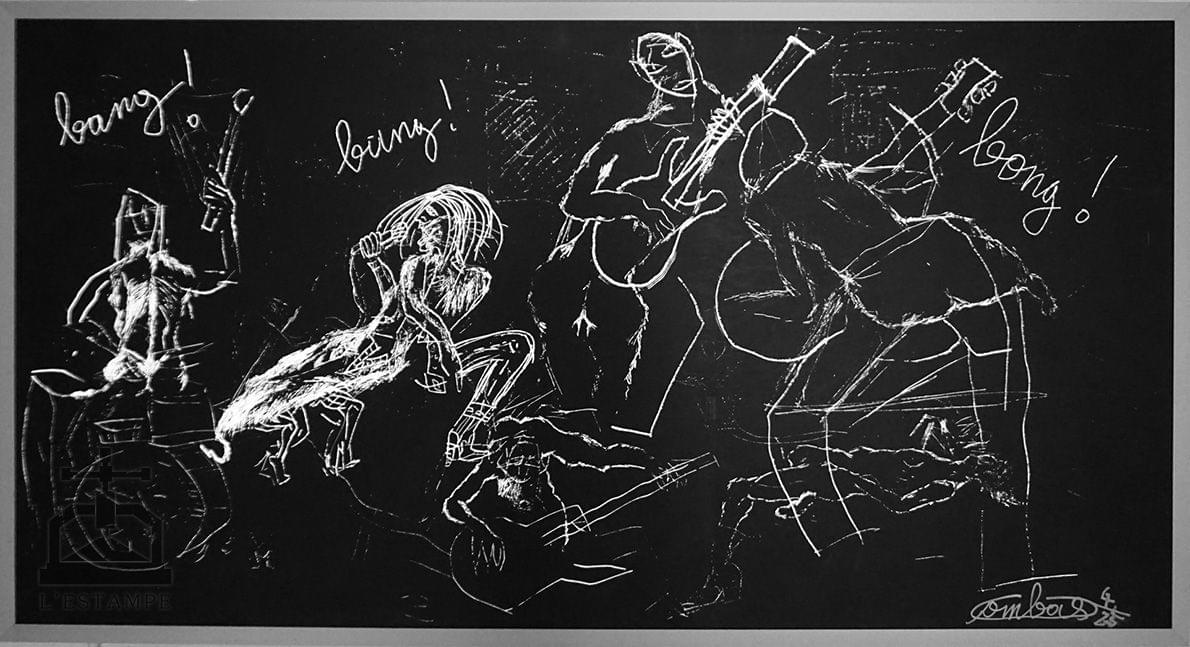 bang!
būng!
bong!
L'ESTAMPE
Combas